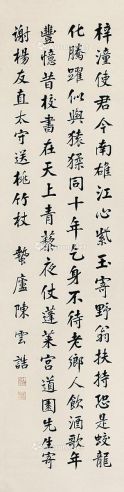 梓潼使君今南雄江心紫玉寄野翁扶持恐是蛟龍
化騰躍似與猿猱同十年乞身不待老鄉人飲酒歌年
豐憶昔校書在天上青藜夜仗蓬萊宮道園先生寄
謝楊友直太守送桃竹杖 蟄廬陳雲誥